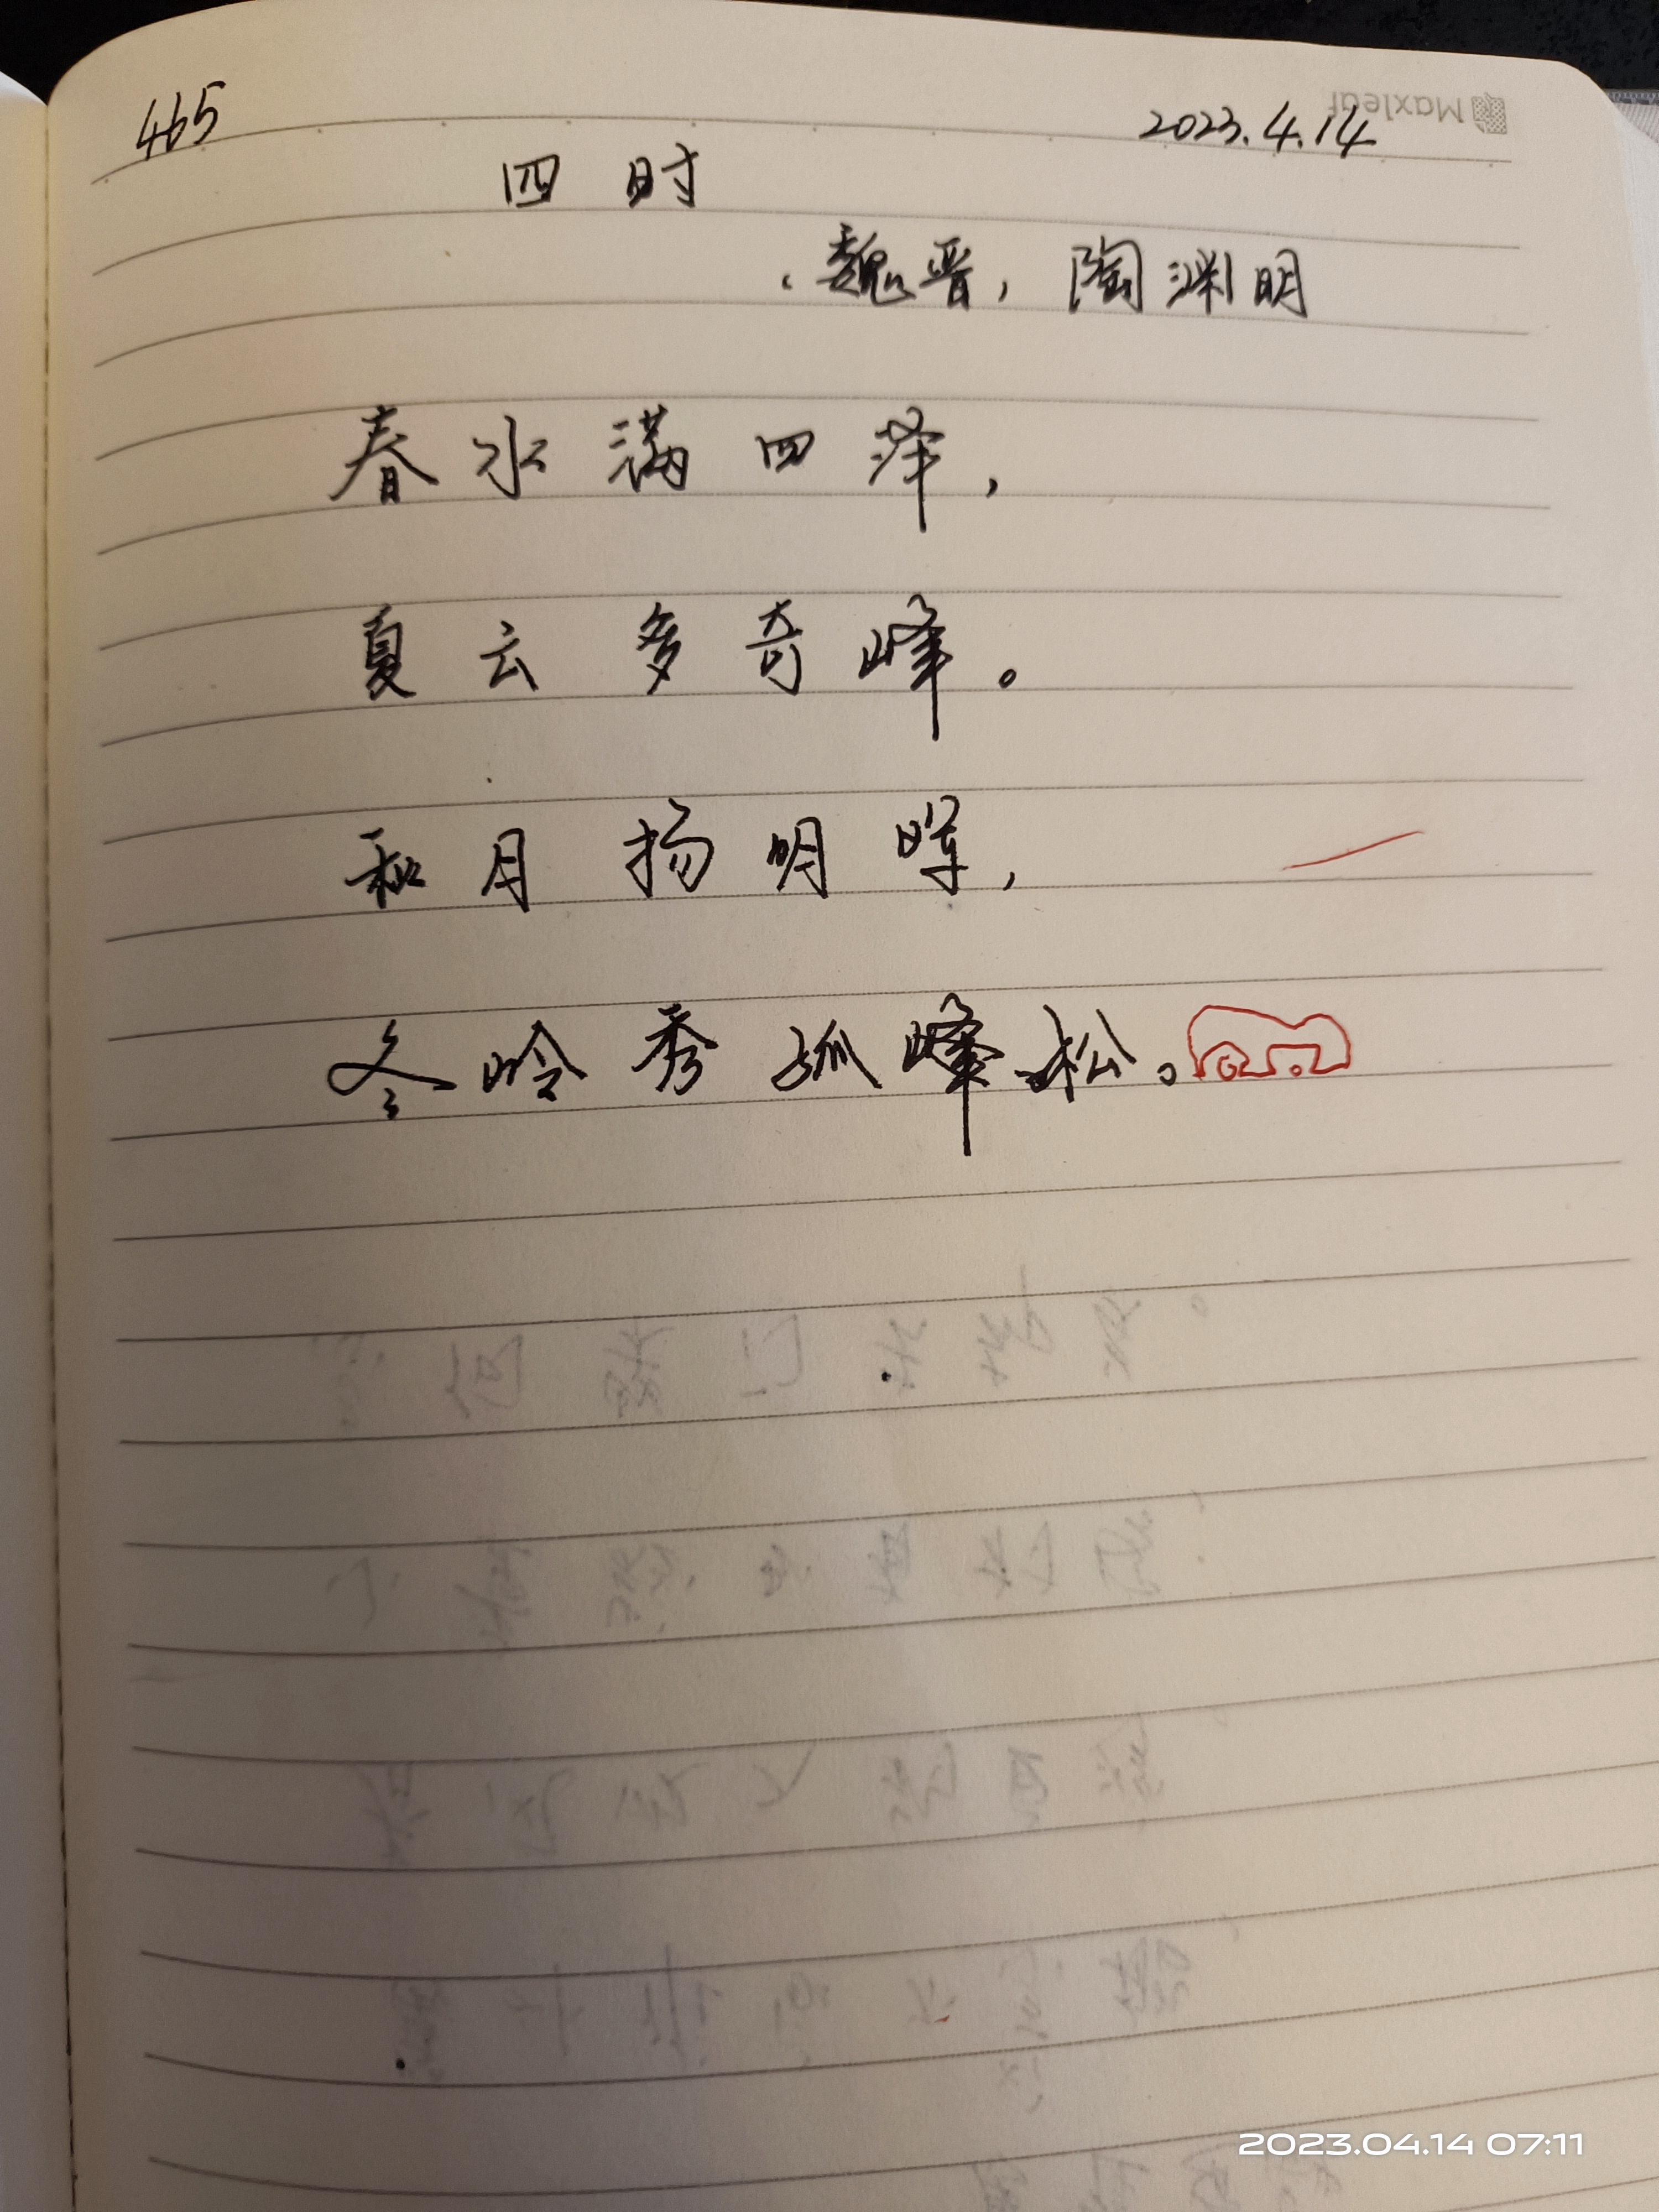 465
Maxleaf
2023.4.14
四时
、魏晋，陶渊明
春水满四泽，
夏云多奇峰。
秋月扬明晖，
冬岭秀孤峰松。
2023.04.14 07:11